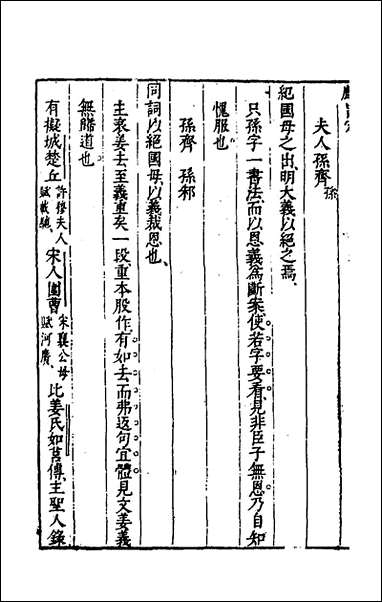 夫人孫齊 孫
紀國母之出、明大義以絕之焉、
只孫字一書法、而以恩義為斷案、使若字要看、見非臣子無恩、乃自知
愧服也
孫齊 孫邾
同詞以絕國母、以義裁恩也、
主哀姜去至義重矣一段、重本股作、有如去而弗返句宜體見文姜義
無賸道也
有擬城楚丘 許穆夫人賦載馳、 宋人圍曹 宋襄公母賦河廣、 比姜氏如莒傳、主聖人錄